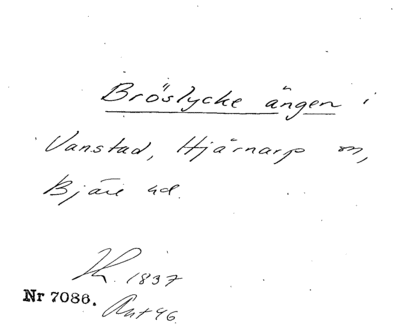 Bröslycke ängen i
Vanstad, Hjärnarp sn,
Bjäre hd.
1837
Nr 7086.